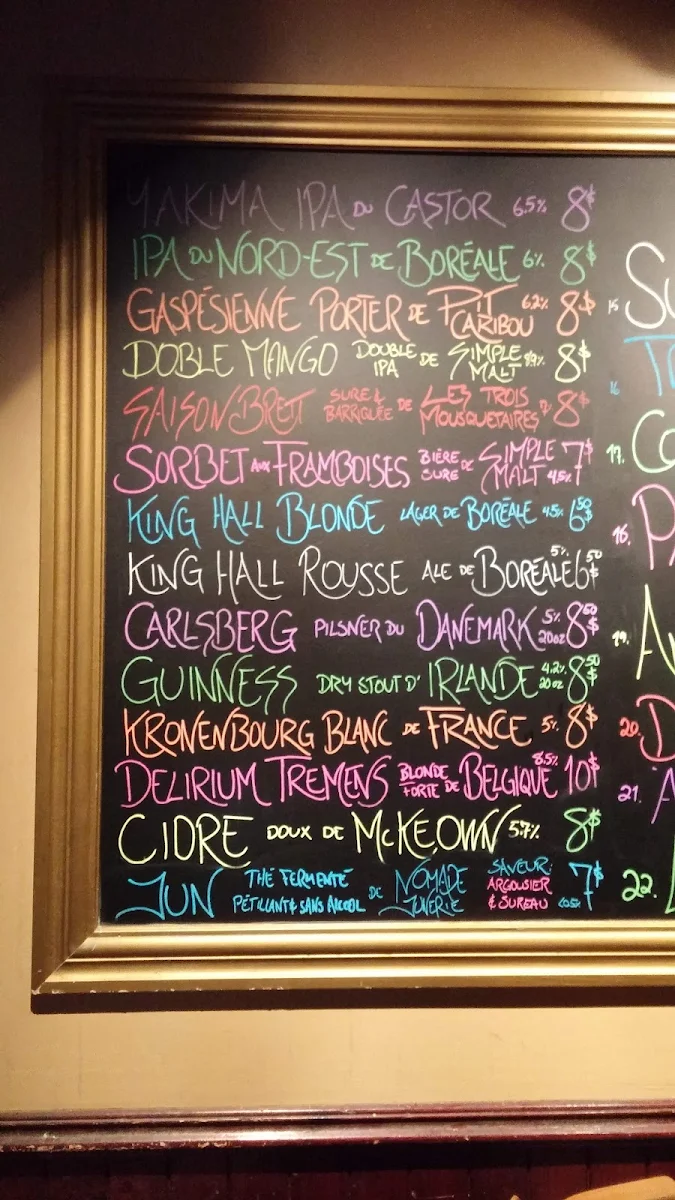 YAKIMA IPA DU CASTOR 6.5% 8$
IPA DU NORD-EST DE BORÉALE 6% 8$
GASPÉSIENNE PORTER DE PIT CARIBOU 6.2% 8$
DOBLE MANGO DOUBLE IPA DE SIMPLE MALT 8$
SAISON BRETT SURE & BARRIQUÉE DE LES TROIS MOUSQUETAIRES 8$
SORBET AUX FRAMBOISES BIÈRE SURE DE SIMPLE MALT 4.5% 7$
KING HALL BLONDE LAGER DE BORÉALE 4.5% 6 50 $
KING HALL ROUSSE ALE DE BORÉALE 5% 6 50 $
CARLSBERG PILSNER DU DANEMARK 5% 20oz 8 50 $
GUINNESS DRY STOUT D' IRLANDE 4.2% 20oz 8 50 $
KRONENBOURG BLANC DE FRANCE 5% 8$
DELIRIUM TREMENS BLONDE FORTE DE BELGIQUE 8.5% 10$
CIDRE DOUX DE MCKEOWN 5.7% 8$
JUN THÉ FERMENTÉ PÉTILLANT & SANS ALCOOL DE NOMADE JUNERIE SAVEUR: ARGOUSIER & SUREAU 7$
15
16
17.
19.
20.
21.
22.